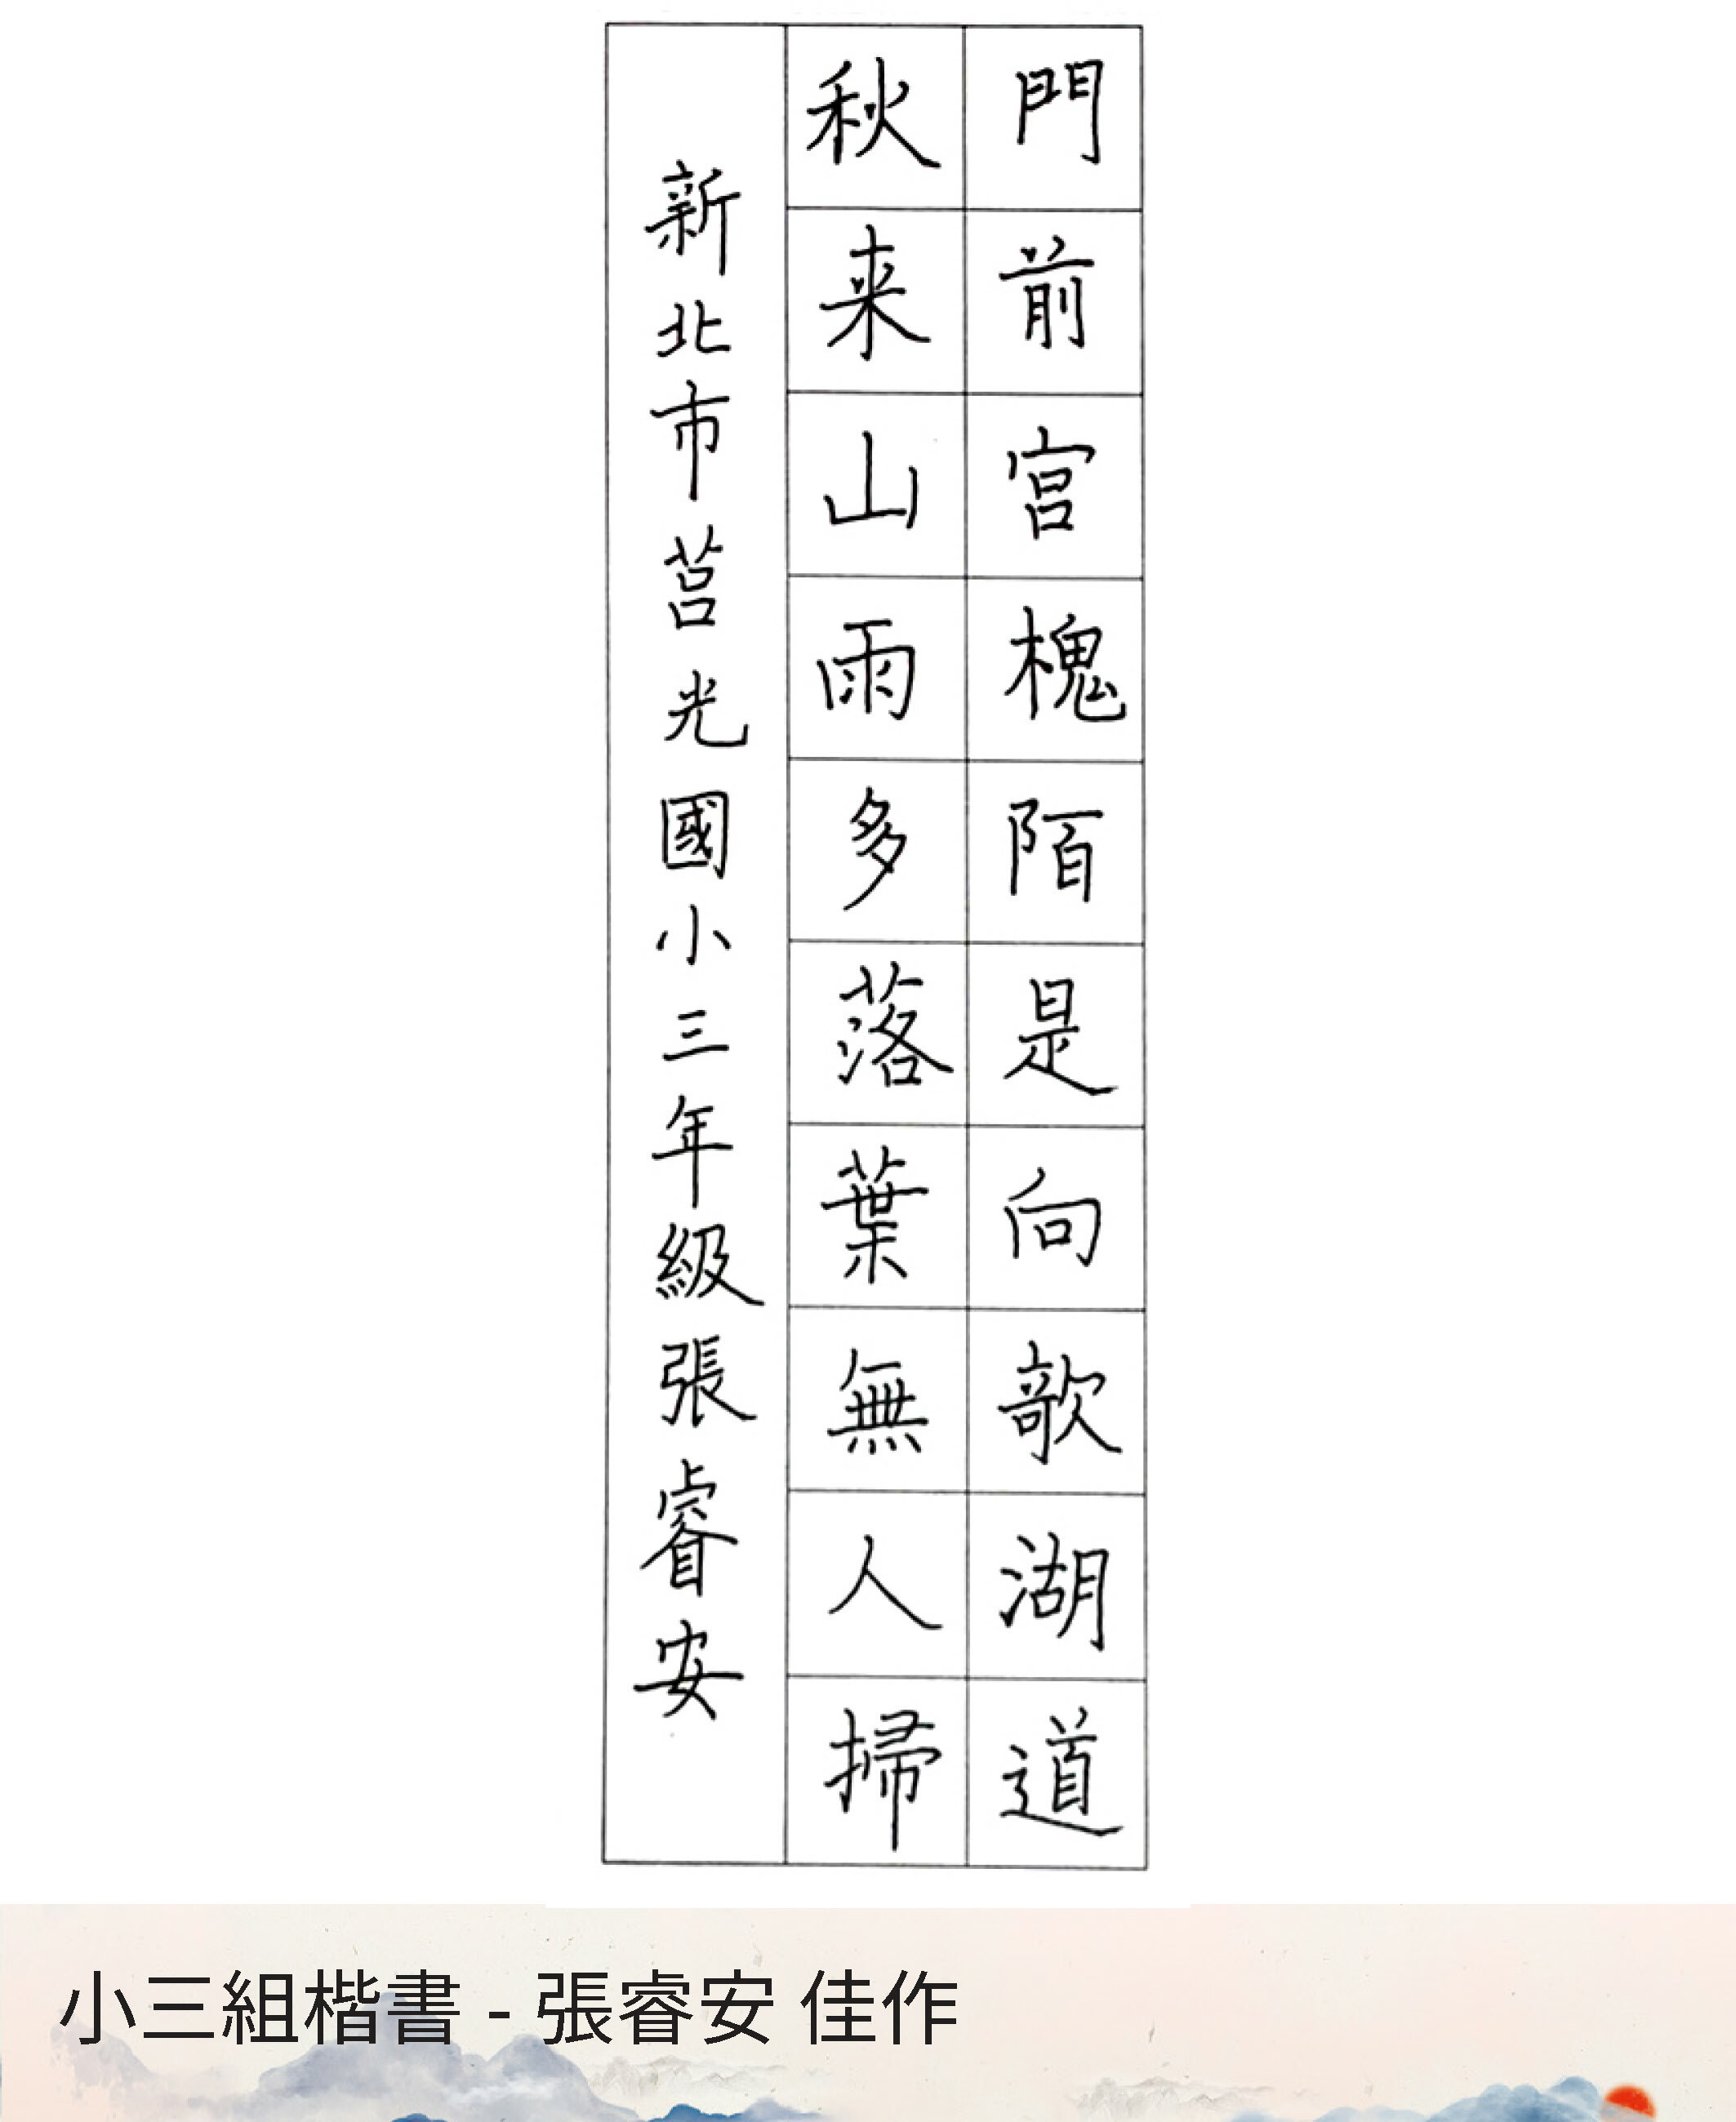 門前宮槐陌是向歌湖道
秋来山雨多落葉無人掃
新北市莒光國小三年級張睿安
小三組楷書 - 張睿安 佳作